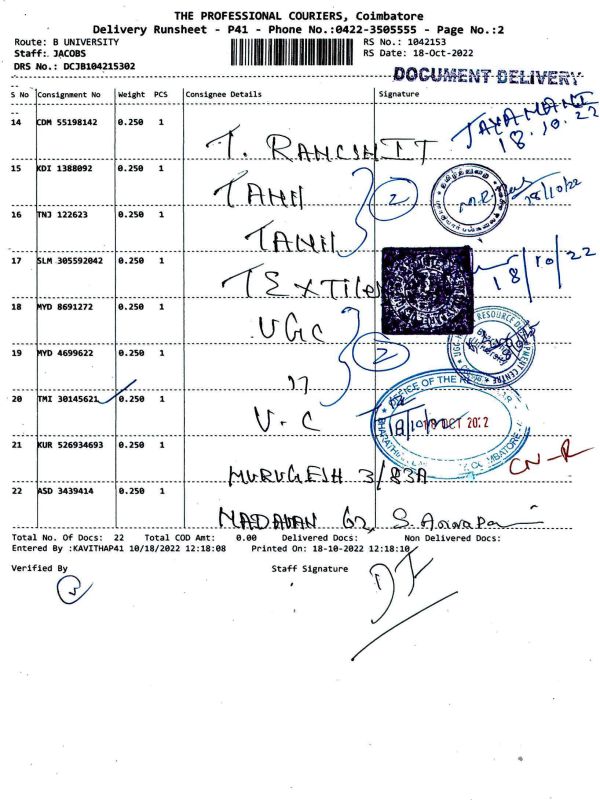 THE PROFESSIONAL COURIERS, Coimbatore
Delivery Runsheet - P41 - Phone No.:0422-3505555 - Page No.:2
Route: B UNIVERSITY RS No.: 1042153
Staff: JACOBS RS Date: 18-Oct-2022
DRS No.: DCJB104215302
DOCUMENT DELIVERY
S No Consignment No Weight PCS Consignee Details Signature
14 CDM 55198142 0.250 1 T. RANCJHIT JAYAMANI 18.10.22
15 KDI 1388092 0.250 1 TAMIL 2 18/10/22
16 TNJ 122623 0.250 1 TAMIL
17 SLM 305592042 0.250 1 TEXTILE 18/10/22
18 MYD 8691272 0.250 1 UGC
19 MYD 4699622 0.250 1 " 2
20 TMI 30145621 0.250 1 V.C OFFICE OF THE 18 OCT 2022
21 KUR 526934693 0.250 1 MURUGESH 3/83A CN-R
22 ASD 3439414 0.250 1 MADAVAN 62
Total No. Of Docs: 22 Total COD Amt: 0.00 Delivered Docs: Non Delivered Docs:
Entered By :KAVITHAP41 10/18/2022 12:18:08 Printed On: 18-10-2022 12:18:10
Verified By Staff Signature